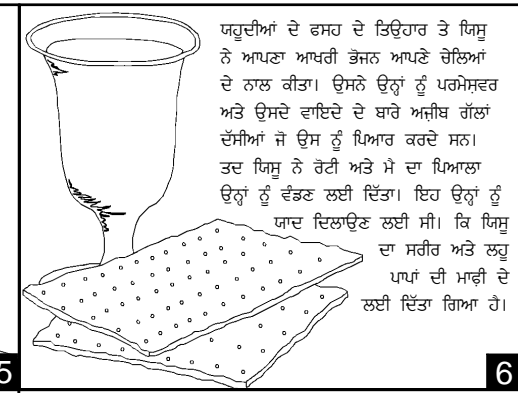 ਯਹੂਦੀਆਂ ਦੇ ਫਸਹ ਦੇ ਤਿਉਹਾਰ ਤੇ ਯਿਸੂ
ਨੇ ਆਪਣਾ ਆਖਰੀ ਭੋਜਨ ਆਪਣੇ ਚੇਲਿਆਂ
ਦੇ ਨਾਲ ਕੀਤਾ। ਉਸਨੇ ਉਨ੍ਹਾਂ ਨੂੰ ਪਰਮੇਸ਼ਵਰ
ਅਤੇ ਉਸਦੇ ਵਾਇਦੇ ਦੇ ਬਾਰੇ ਅਜ਼ੀਬ ਗੱਲਾਂ
ਦੱਸੀਆਂ ਜੋ ਉਸ ਨੂੰ ਪਿਆਰ ਕਰਦੇ ਸਨ।
ਤਦ ਯਿਸੂ ਨੇ ਰੋਟੀ ਅਤੇ ਮੈ ਦਾ ਪਿਆਲਾ
ਉਨ੍ਹਾਂ ਨੂੰ ਵੰਡਣ ਲਈ ਦਿੱਤਾ। ਇਹ ਉਨ੍ਹਾਂ ਨੂੰ
ਯਾਦ ਦਿਲਾਉਣ ਲਈ ਸੀ। ਕਿ ਯਿਸੂ
ਦਾ ਸਰੀਰ ਅਤੇ ਲਹੂ
ਪਾਪਾਂ ਦੀ ਮਾਫ਼ੀ ਦੇ
ਲਈ ਦਿੱਤਾ ਗਿਆ ਹੈ।
5
6